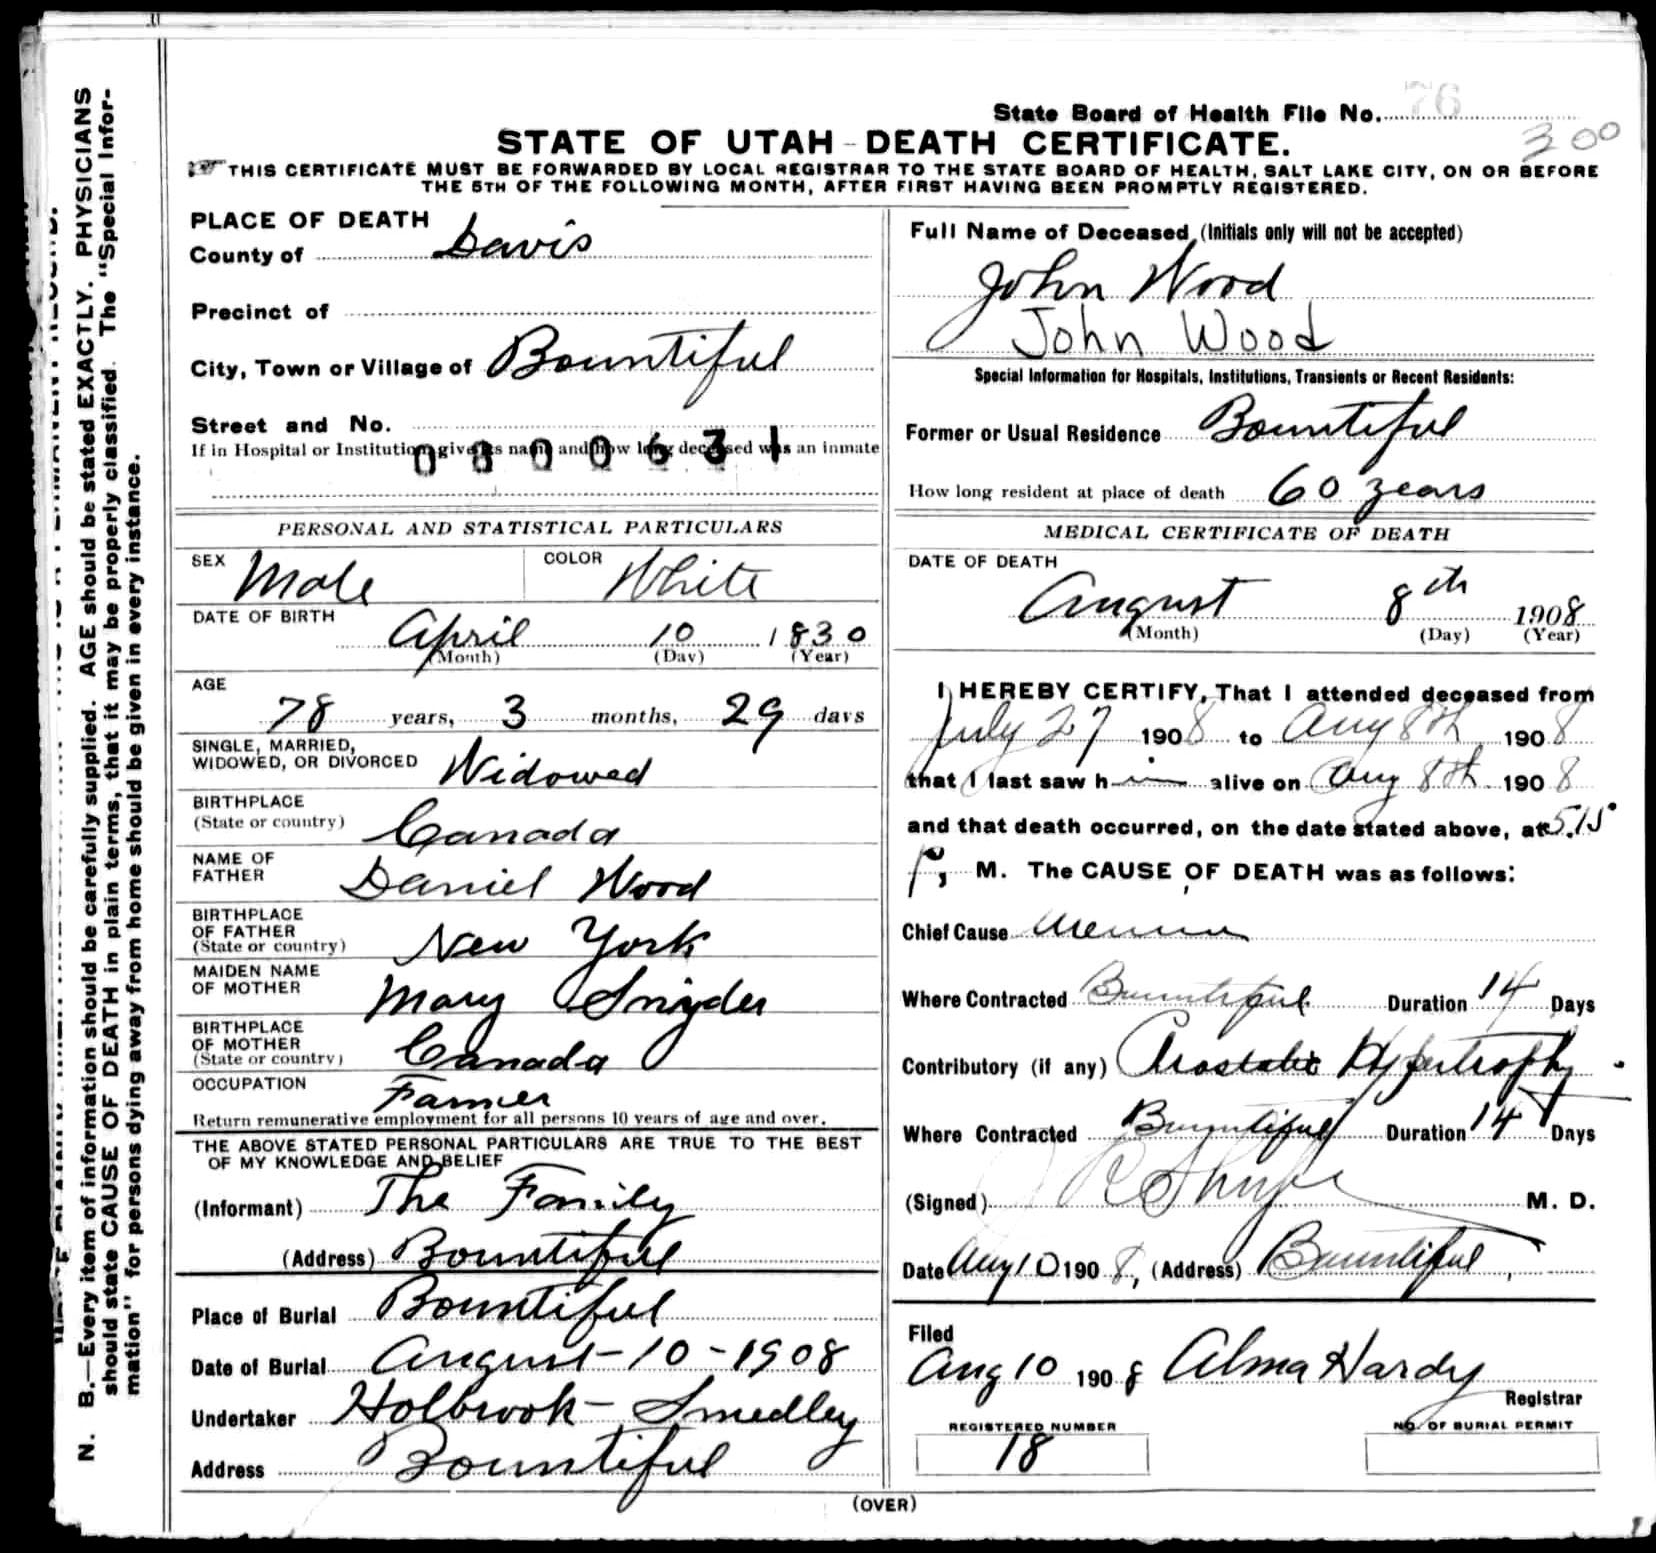 State Board of Health File No. 76
300
STATE OF UTAH - DEATH CERTIFICATE.
THIS CERTIFICATE MUST BE FORWARDED BY LOCAL REGISTRAR TO THE STATE BOARD OF HEALTH, SALT LAKE CITY, ON OR BEFORE
THE 5TH OF THE FOLLOWING MONTH, AFTER FIRST HAVING BEEN PROMPTLY REGISTERED.
N. B.—Every item of information should be carefully supplied. AGE should be stated EXACTLY. PHYSICIANS
should state CAUSE OF DEATH in plain terms, that it may be properly classified. The "Special Infor-
mation" for persons dying away from home should be given in every instance.
PLACE OF DEATH
County of Davis
Precinct of
City, Town or Village of Bountiful
Street and No.
If in Hospital or Institution, give its name and how long deceased was an inmate
0800631
PERSONAL AND STATISTICAL PARTICULARS
SEX Male COLOR White
DATE OF BIRTH
April 10 1830
(Month) (Day) (Year)
AGE
78 years, 3 months, 29 days
SINGLE, MARRIED,
WIDOWED, OR DIVORCED Widowed
BIRTHPLACE
(State or country) Canada
NAME OF
FATHER Daniel Wood
BIRTHPLACE
OF FATHER
(State or country) New York
MAIDEN NAME
OF MOTHER Mary Snyder
BIRTHPLACE
OF MOTHER
(State or country) Canada
OCCUPATION
Farmer
Return remunerative employment for all persons 10 years of age and over.
THE ABOVE STATED PERSONAL PARTICULARS ARE TRUE TO THE BEST
OF MY KNOWLEDGE AND BELIEF
(Informant) The Family
(Address) Bountiful
Place of Burial Bountiful
Date of Burial August-10-1908
Undertaker Holbrook-Smedley
Address Bountiful
Full Name of Deceased (Initials only will not be accepted)
John Wood
John Wood
Special Information for Hospitals, Institutions, Transients or Recent Residents:
Former or Usual Residence Bountiful
How long resident at place of death 60 years
MEDICAL CERTIFICATE OF DEATH
DATE OF DEATH
August 8th 1908
(Month) (Day) (Year)
I HEREBY CERTIFY, That I attended deceased from
July 27 1908 to Aug 8th 1908
that I last saw him alive on Aug 8th 1908
and that death occurred, on the date stated above, at 5.15
P, M. The CAUSE OF DEATH was as follows:
Chief Cause
Where Contracted Bountiful Duration 14 Days
Contributory (if any) Prostatic Hypertrophy
Where Contracted Bountiful Duration 14 Days
(Signed) M. D.
Date Aug 10 1908, (Address) Bountiful
Filed
Aug 10 1908 Alma Hardy
Registrar
REGISTERED NUMBER NO. OF BURIAL PERMIT
18
(OVER)